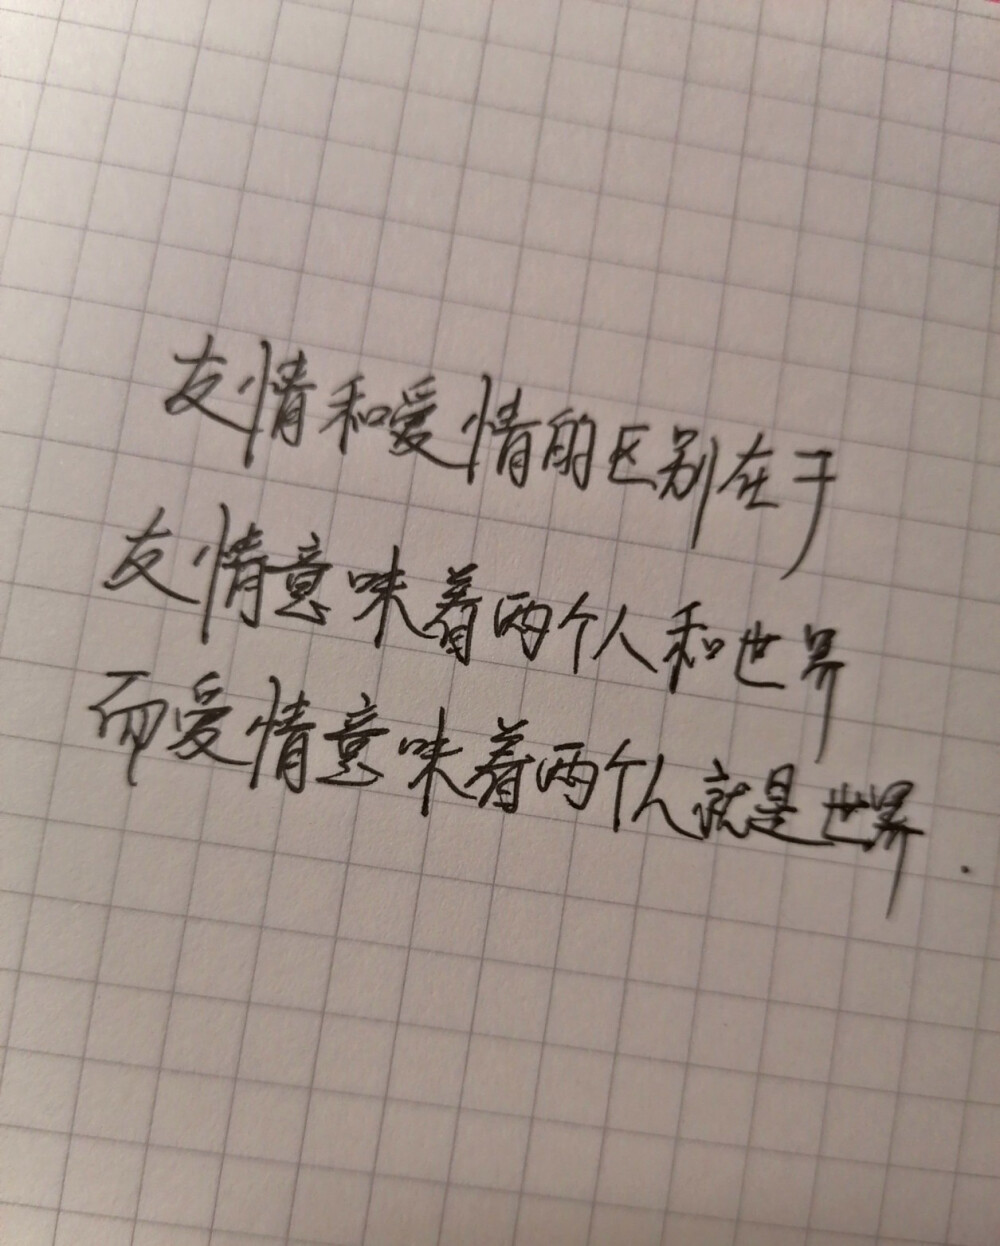 友情和爱情的区别在于
友情意味着两个人和世界
而爱情意味着两个人就是世界.